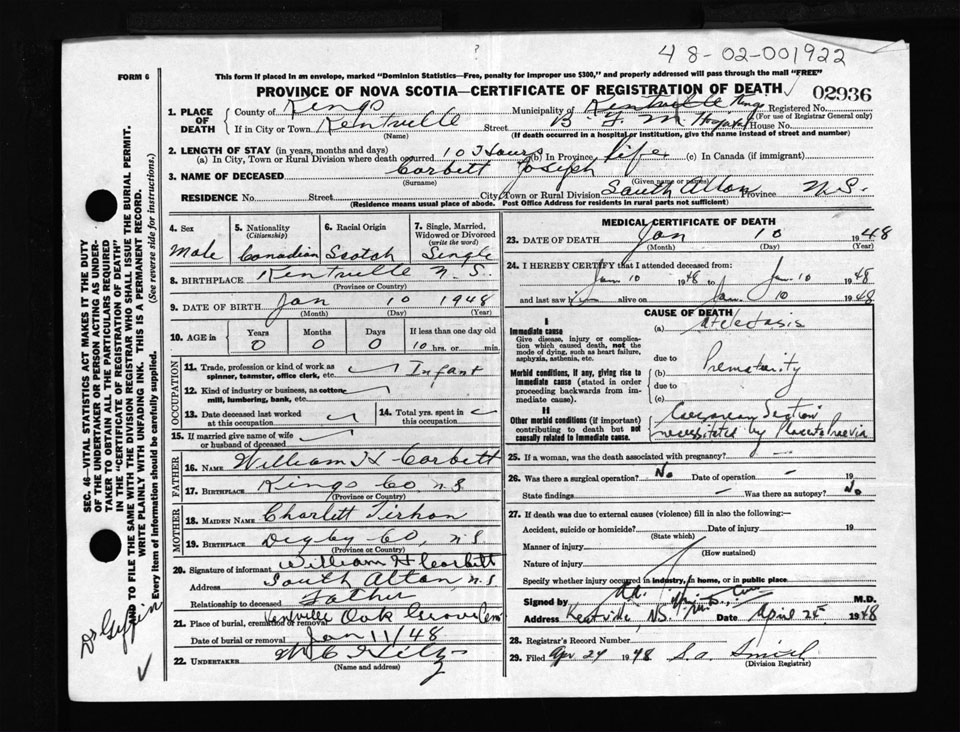 48-02-001922
FORM 6
This form if placed in an envelope, marked "Dominion Statistics—Free, penalty for improper use $300," and properly addressed will pass through the mail "FREE"
PROVINCE OF NOVA SCOTIA—CERTIFICATE OF REGISTRATION OF DEATH
02936
1. PLACE OF DEATH
County of Kings
Municipality of Kentville Kings
Registered No.
(For use of Registrar General only)
If in City or Town Kentville
(Name)
Street B F M Hospital House No.
(If death occurred in a hospital or institution, give the name instead of street and number)
2. LENGTH OF STAY (in years, months and days)
(a) In City, Town or Rural Division where death occurred 10 Hours (b) In Province Life (c) In Canada (if immigrant)
3. NAME OF DECEASED Corbett Joseph
(Surname) (Given name or names)
RESIDENCE No. Street City, Town or Rural Division South Alton Province N.S.
(Residence means usual place of abode. Post Office Address for residents in rural parts not sufficient)
4. Sex
Male
5. Nationality
(Citizenship)
Canadian
6. Racial Origin
Scotch
7. Single, Married,
Widowed or Divorced
(write the word)
Single
8. BIRTHPLACE Kentville N.S.
(Province or Country)
9. DATE OF BIRTH Jan 10 1948
(Month) (Day) (Year)
10. AGE in Years Months Days If less than one day old
0 0 0 10 hrs. or min.
OCCUPATION
11. Trade, profession or kind of work as
spinner, teamster, office clerk, etc. Infant
12. Kind of industry or business, as cotton-
mill, lumbering, bank, etc.
13. Date deceased last worked
at this occupation
14. Total yrs. spent in
this occupation
15. If married give name of wife
or husband of deceased
FATHER
16. NAME William H Corbett
17. BIRTHPLACE Kings Co N.S
(Province or Country)
MOTHER
18. MAIDEN NAME Charlett
19. BIRTHPLACE Digby Co, N.S
(Province or Country)
20. Signature of informant William H Corbett
Address South Alton N.S
Relationship to deceased Father
21. Place of burial, cremation or removal Kentville Oak Grove Cem
Date of burial or removal Jan 11/48
22. UNDERTAKER
(Name and address)
MEDICAL CERTIFICATE OF DEATH
23. DATE OF DEATH Jan 10 1948
(Month) (Day) (Year)
24. I HEREBY CERTIFY that I attended deceased from:
Jan. 10 1948 to Jan. 10 1948
and last saw alive on Jan. 10 1948
CAUSE OF DEATH
I
Immediate cause
Give disease, injury or complica-
tion which caused death, not the
mode of dying, such as heart failure,
asphyxia, asthenia, etc.
(a) Atelectasis
due to
Morbid conditions, if any, giving rise to
immediate cause (stated in order
proceeding backwards from im-
mediate cause).
(b) Prematurity
due to
(c)
II
Other morbid conditions (if important)
contributing to death but not
causally related to immediate cause.
Caesarean Section
necessitated by Placenta Praevia
25. If a woman, was the death associated with pregnancy?
26. Was there a surgical operation? No Date of operation 19
State findings Was there an autopsy? No
27. If death was due to external causes (violence) fill in also the following:—
Accident, suicide or homicide? Date of injury 19
(State which)
Manner of injury
(How sustained)
Nature of injury
Specify whether injury occurred in industry, in home, or in public place
Signed by M.D.
Address Kentville, NS. Date April 24 1948
28. Registrar's Record Number
29. Filed Apr 24 1948 S.A.
(Division Registrar)
SEC. 46—VITAL STATISTICS ACT MAKES IT THE DUTY
OF THE UNDERTAKER OR PERSON ACTING AS UNDER-
TAKER TO OBTAIN ALL THE PARTICULARS REQUIRED
IN THE "CERTIFICATE OF REGISTRATION OF DEATH"
AND TO FILE THE SAME WITH THE DIVISION REGISTRAR WHO SHALL ISSUE THE BURIAL PERMIT.
WRITE PLAINLY WITH UNFADING INK. THIS IS A PERMANENT RECORD.
Every item of information should be carefully supplied. (See reverse side for instructions.)
Dr Giffin